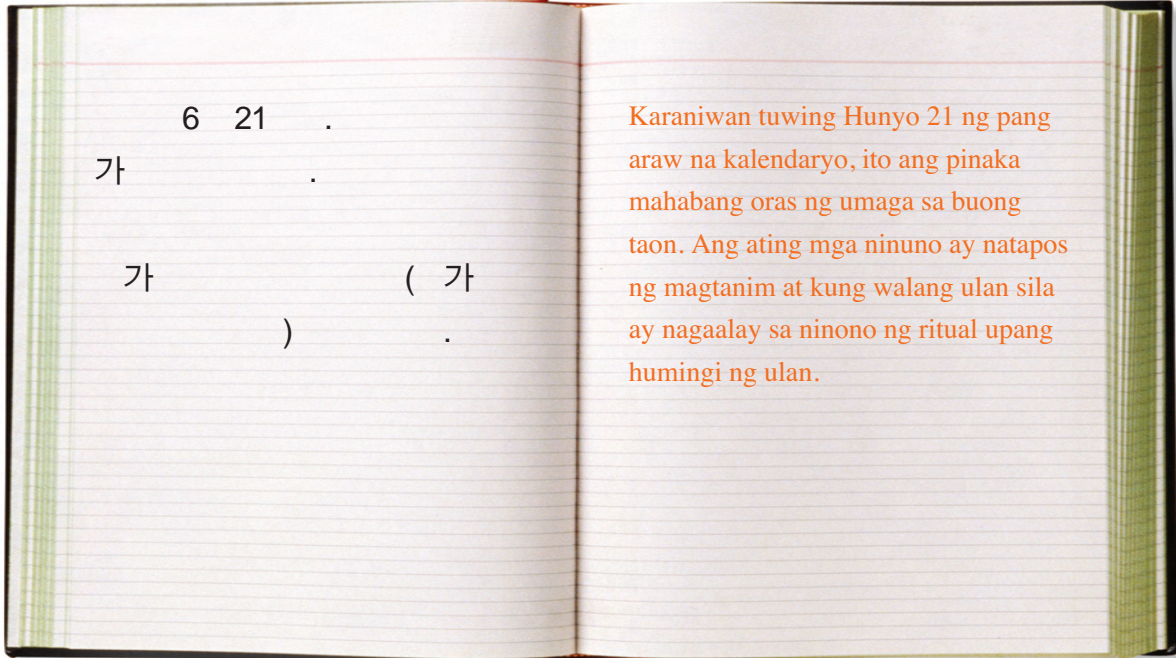 6 21 .
가 .
가 ( 가
) .
Karaniwan tuwing Hunyo 21 ng pang
araw na kalendaryo, ito ang pinaka
mahabang oras ng umaga sa buong
taon. Ang ating mga ninuno ay natapos
ng magtanim at kung walang ulan sila
ay nagaalay sa ninono ng ritual upang
humingi ng ulan.